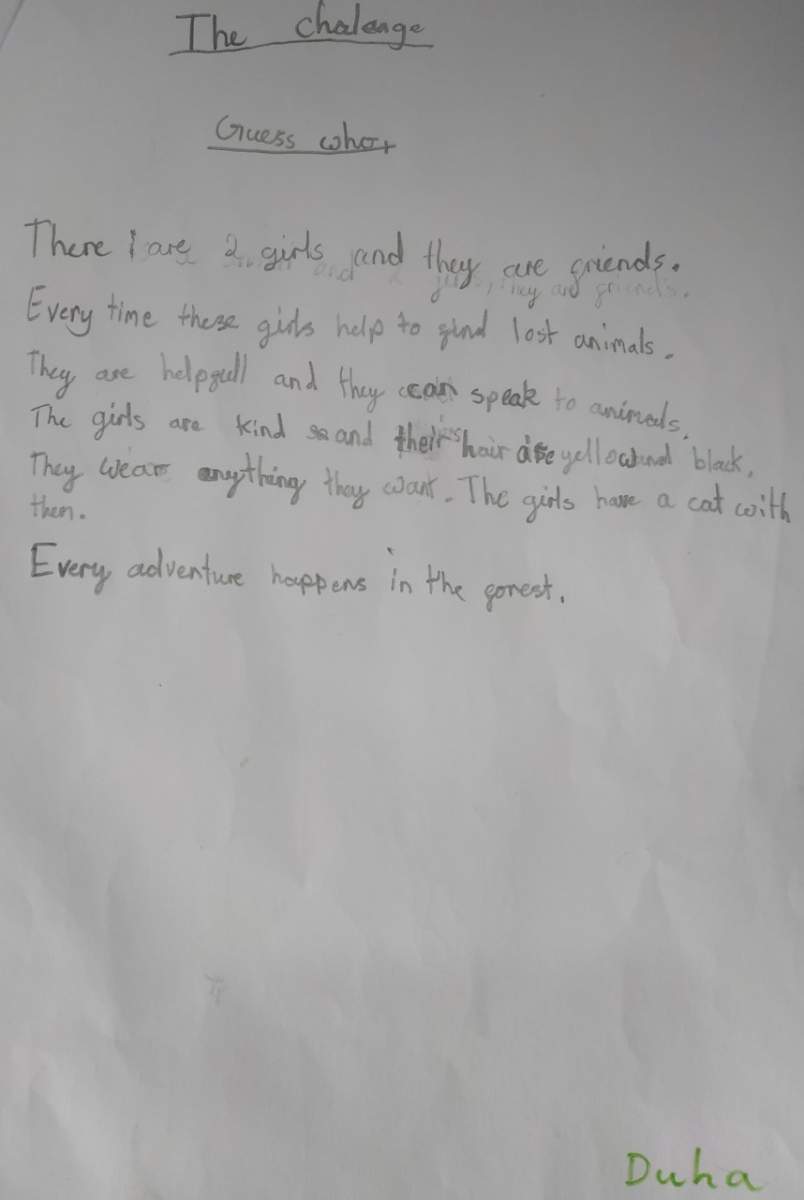 The chalenge
Guess what
There are 2 girls and they are friends.
Every time these girls help to find lost animals.
They are helpfull and they can speak to animals.
The girls are kind and their hair are yellow and black.
They wear anything they want. The girls have a cat with
them.
Every adventure happens in the forest.
Duha